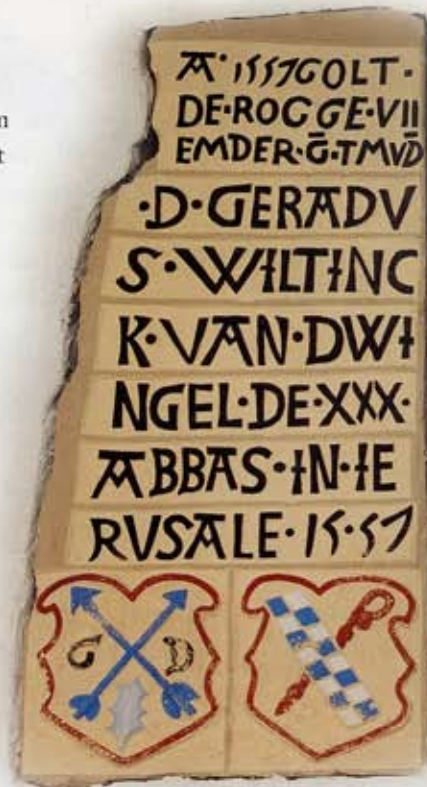 A·1557GOLT·
DE·ROGGE·VII
EMDER·Ḡ·TMVD̄
·D·GERADV
S·WILTINC
K·VAN·DWI
NGEL·DE·XXX·
ABBAS·IN·IE
RVSALE·15·57